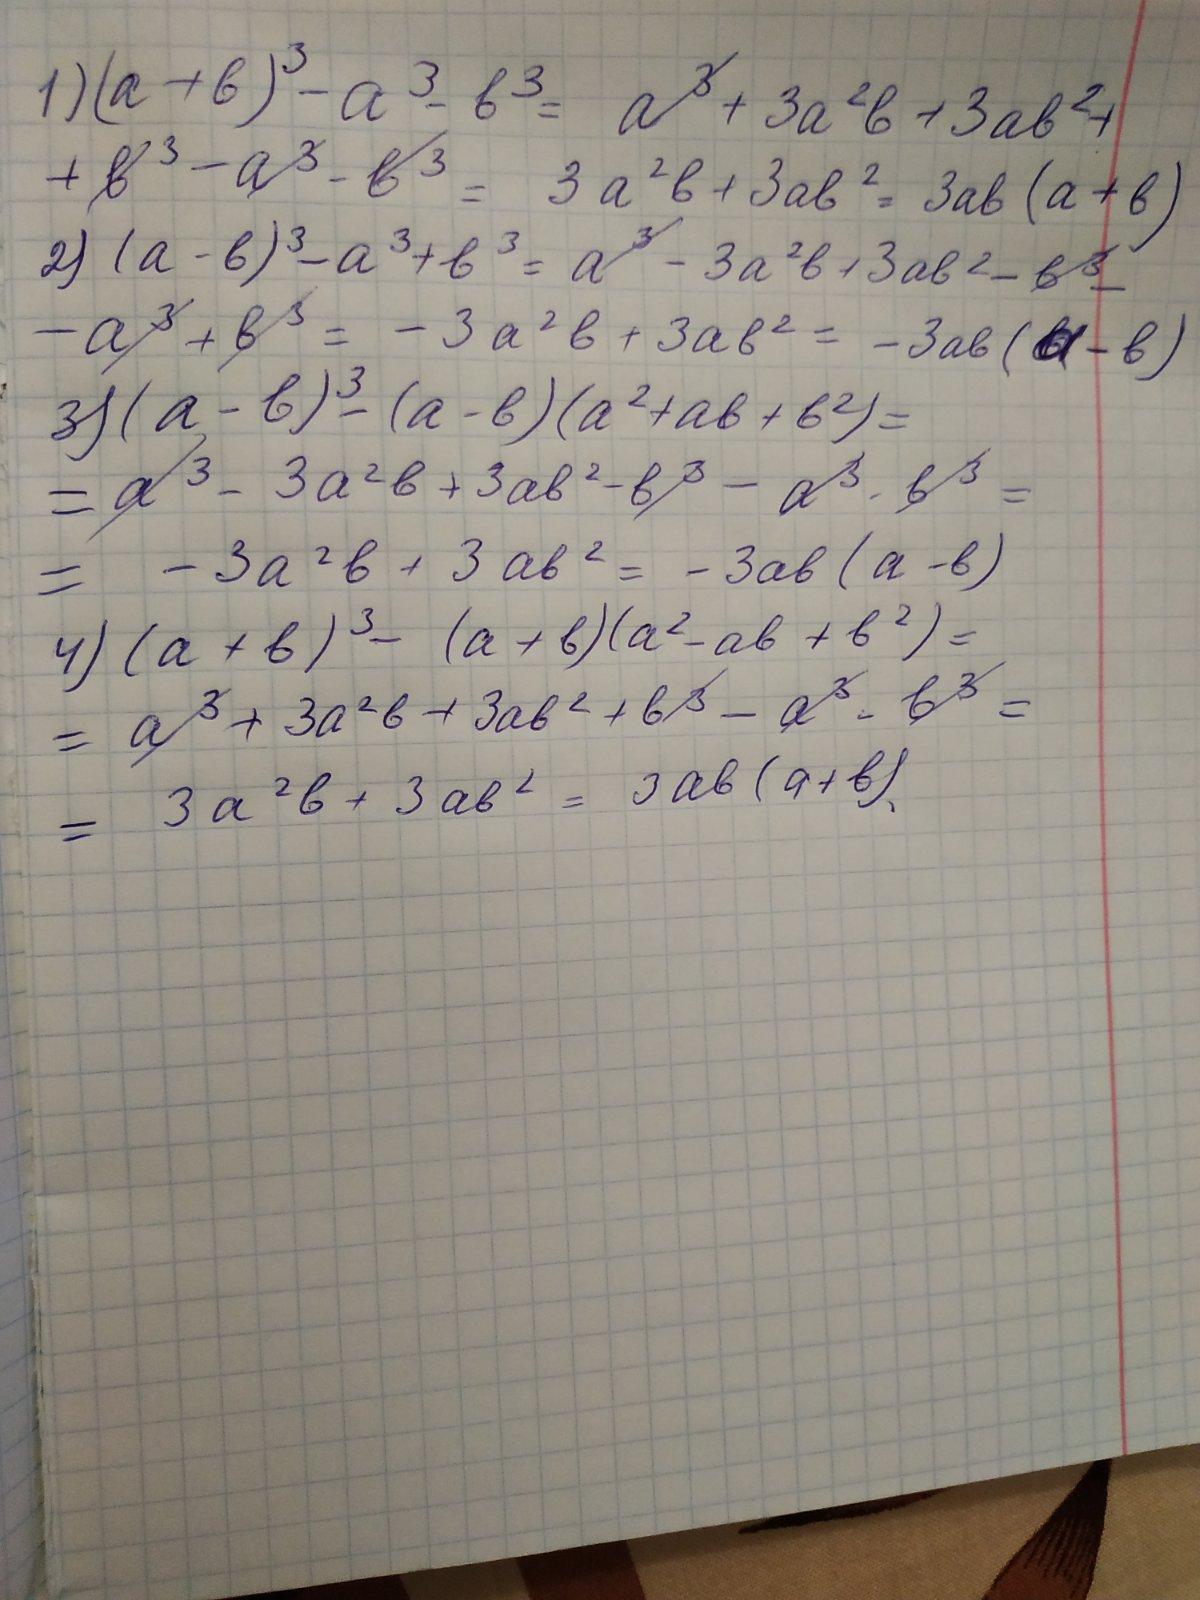 1) (a + b)³ - a³ - b³ = a³ + 3a²b + 3ab² +
+ b³ - a³ - b³ = 3a²b + 3ab² = 3ab (a + b)
2) (a - b)³ - a³ + b³ = a³ - 3a²b + 3ab² - b³ -
- a³ + b³ = - 3a²b + 3ab² = - 3ab (a - b)
3) (a - b)³ - (a - b)(a² + ab + b²) =
= a³ - 3a²b + 3ab² - b³ - a³ - b³ =
= - 3a²b + 3ab² = - 3ab (a - b)
4) (a + b)³ - (a + b)(a² - ab + b²) =
= a³ + 3a²b + 3ab² + b³ - a³ - b³ =
= 3a²b + 3ab² = 3ab (a + b).